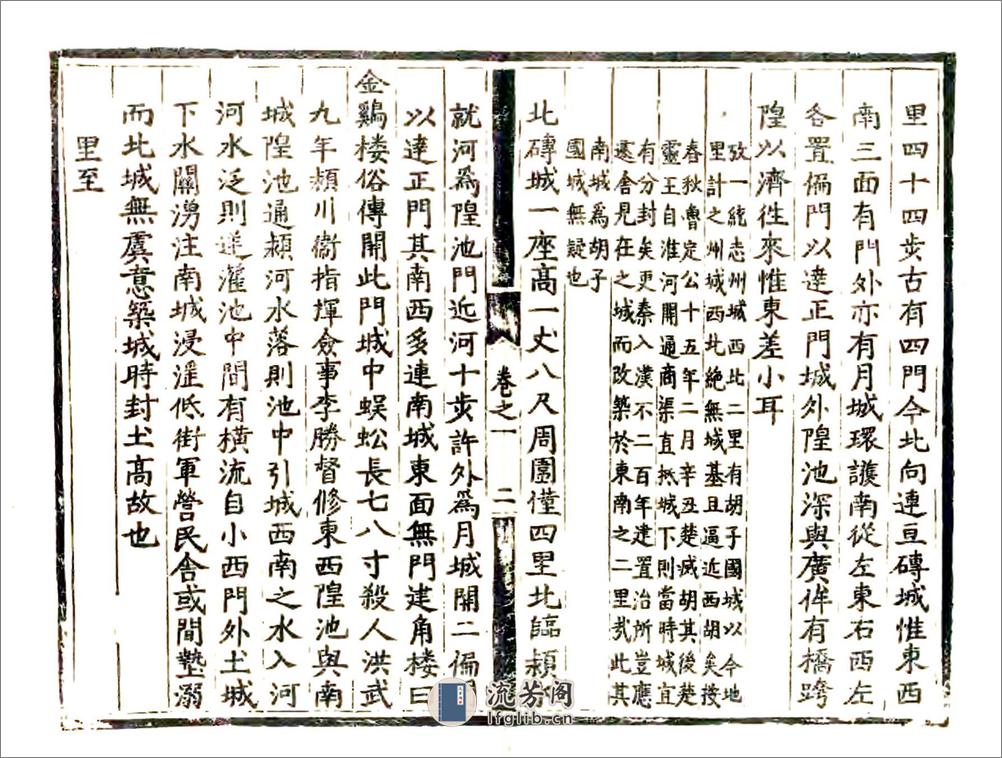 里四十四步古有四門今北向連亘磚城惟東西
南三面有門外亦有月城環護南從左東右西左
各置偏門以達正門城外隍池深與廣侔有橋跨
隍以濟徃來惟東差小耳
攷一統志州城西北二里有胡子國城以今地
里計之州城西北絶無城基且逼近西胡矣按
春秋魯定公十五年二月辛丑楚滅胡其後楚
靈王自淮河開通商渠直抵城下則當時城直
有分封矣更秦入漢不二百年建置治所豈應
遷舍見在之城而改築於東南之二里㢤此其
南城爲胡子
國城無疑也
北磚城一座高一丈八尺周圍僅四里北臨潁
就河爲隍池門近河十步許外爲月城開二偏
以達正門其南西多連南城東面無門建角樓曰
金鷄樓俗傳開此門城中蜈蚣長七八寸殺人洪武
九年潁川衞指揮僉事李勝督修東西隍池與南
城隍池通潁河水落則池中引城西南之水入河
河水泛則逆灌池中間有橫流自小西門外土城
下水關湧注南城浸滛低街軍營民舍或間墊溺
而北城無虞意築城時封土高故也
里至
卷之一
二
流芳阁
lfglib.cn